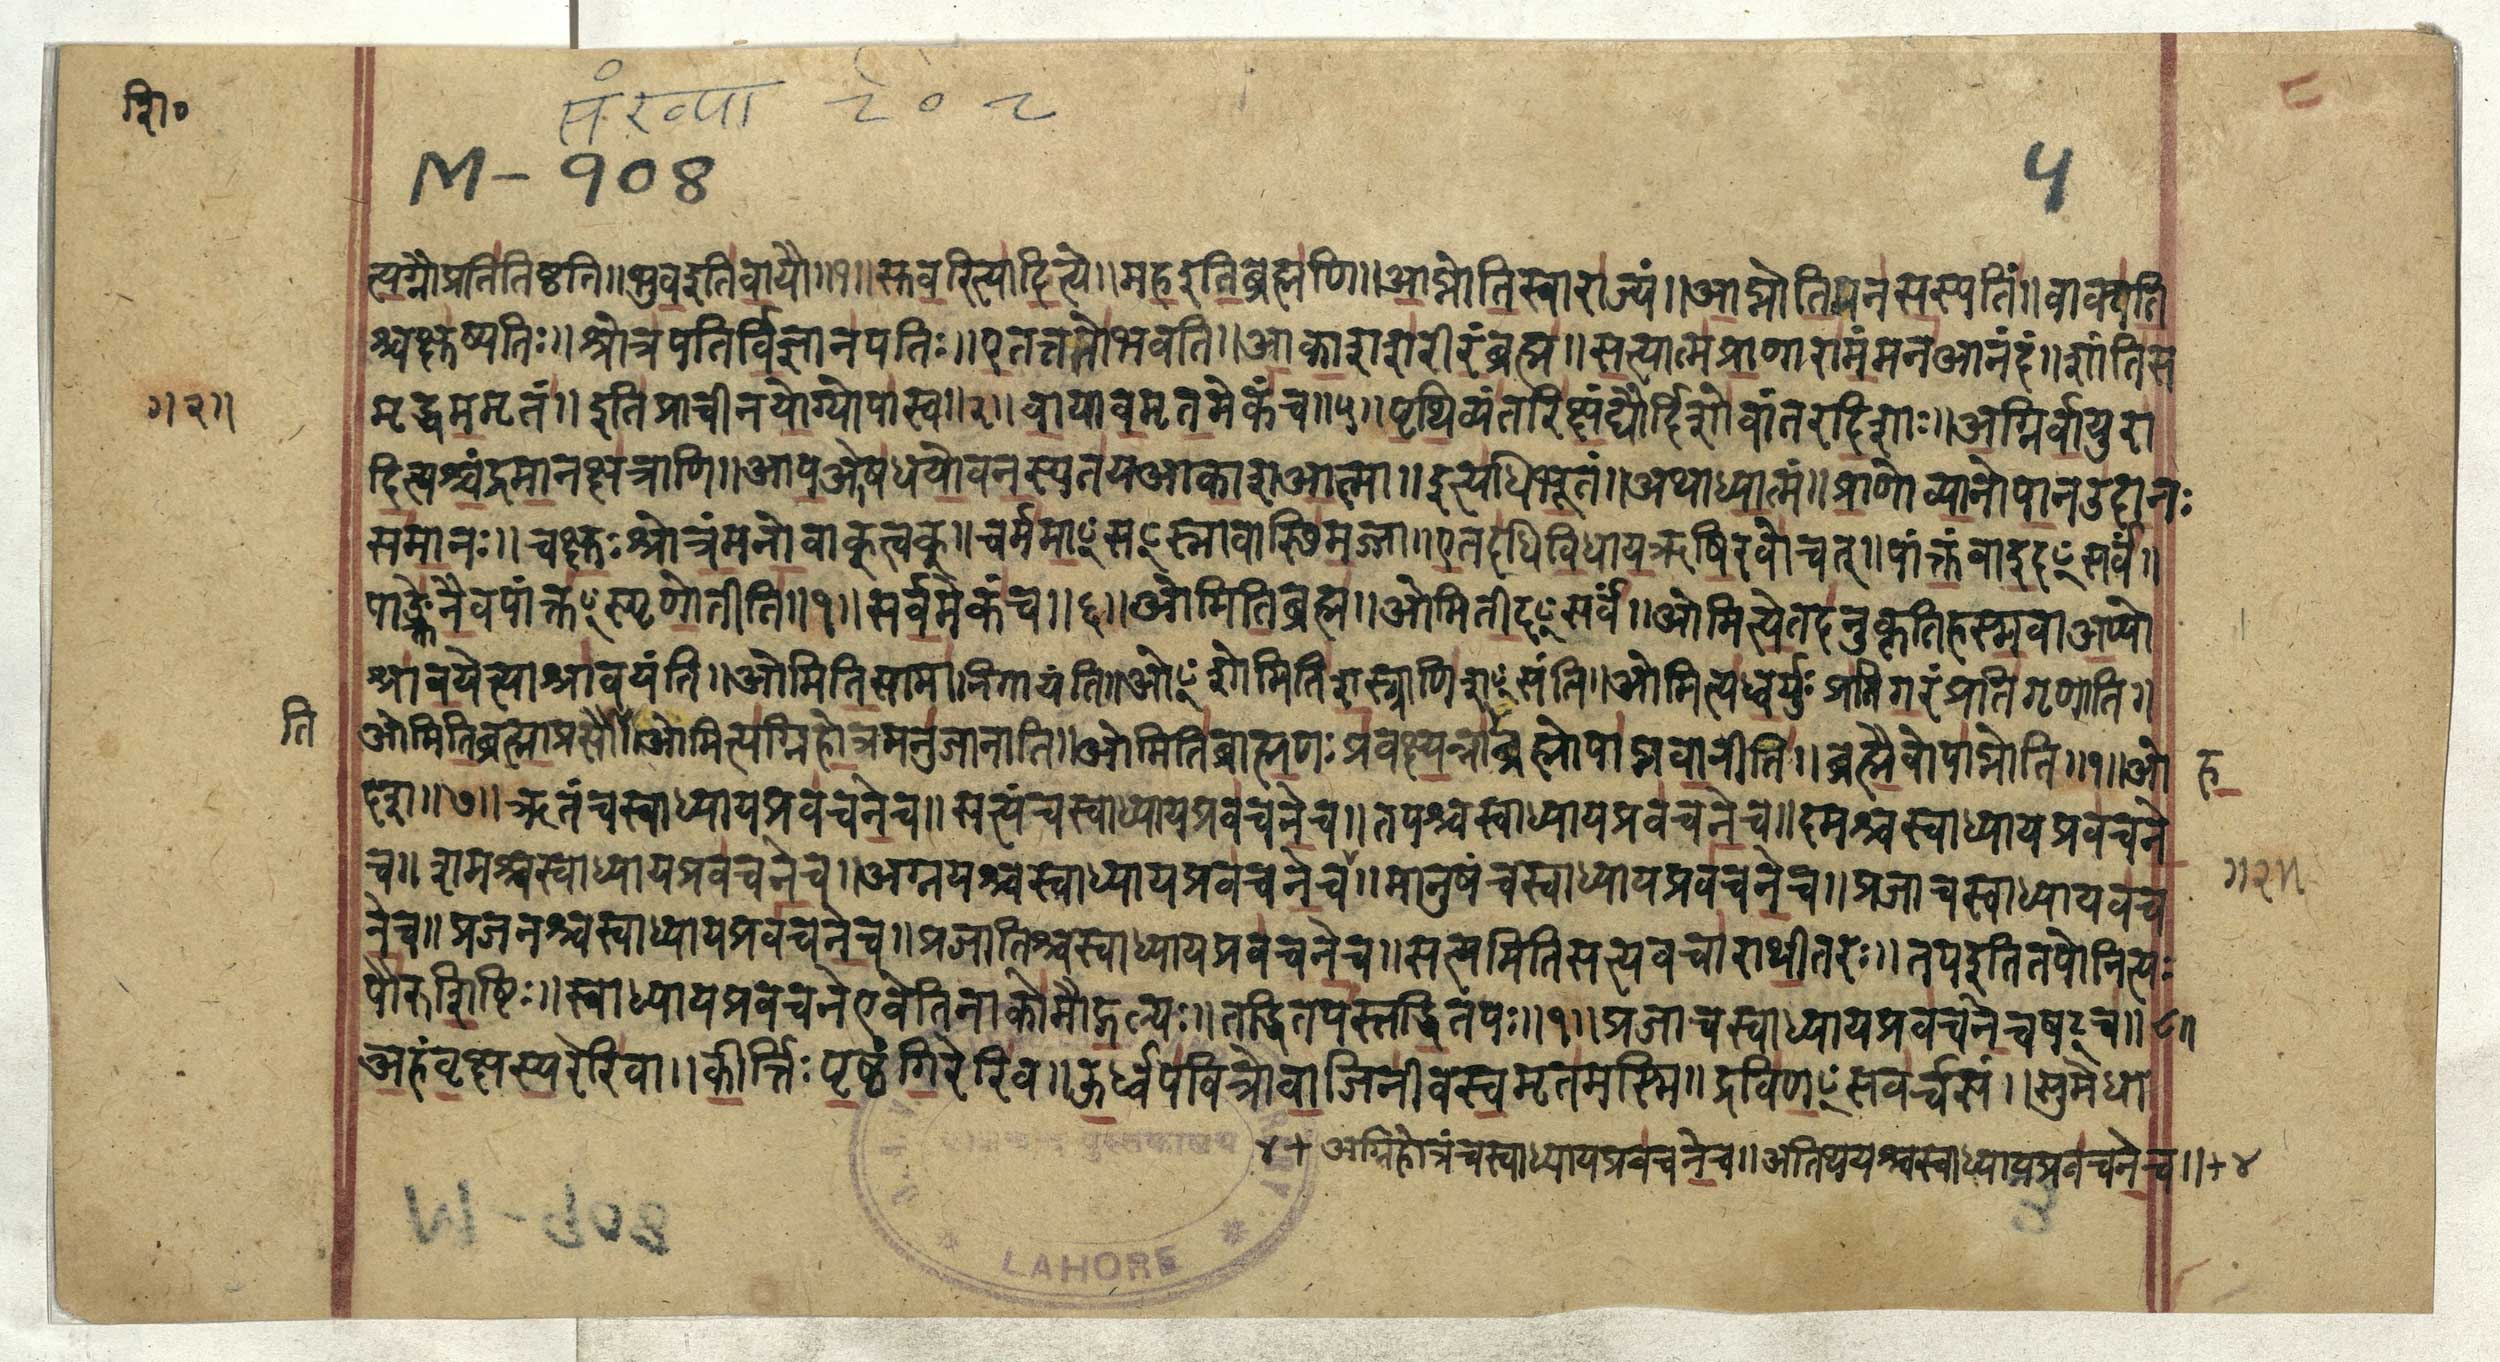 शि०
संख्या २०२
M-908
5
त्यग्नौप्रतितिष्ठति॥भुवइतिवायौ॥१॥स्तवरित्यादित्ये॥महइतिब्रह्मणि॥आप्नोतिस्वाराज्यं॥आप्नोतिमनसस्पतिं॥वाक्पति
श्चक्षुष्पतिः॥श्रोत्रपतिर्विज्ञानपतिः॥एतत्ततोभवति॥आकाशशरीरंब्रह्म॥सत्यात्मप्राणारामंमनआनंदं॥शांतिस
मृद्धममृतं॥इतिप्राचीनयोग्योपास्व॥२॥वायावमृतमेकंच॥५॥पृथिव्यंतरिक्षंद्यौर्दिशोवांतरदिशाः॥अग्निर्वायुरा
दित्यश्चंद्रमानक्षत्राणि॥आपओषधयोवनस्पतयआकाशआत्मा॥इत्यधिभूतं॥अथाध्यात्मं॥प्राणोव्यानोपानउदानः
समानः॥चक्षुःश्रोत्रंमनोवाक्त्वक्॥चर्ममाꣳसꣳस्नावास्थिमज्जा॥एतदधिविधायऋषिरवोचत्॥पांक्तंवाइदꣳसर्वं॥
पाङ्क्तेनैवपांक्तꣳस्पृणोतीति॥१॥सर्वमेकंच॥६॥ओमितिब्रह्म॥ओमितीदꣳसर्वं॥ओमित्येतदनुकृतिहस्मवाअप्यो
श्रावयेत्याश्रावयंति॥ओमितिसामानिगायंति॥ओꣳशोमितिशस्त्राणिशꣳसंति॥ओमित्यध्वर्युःप्रतिगरंप्रतिगृणाति॥
ओमितिब्रह्माप्रसौ॥ओमित्यग्निहोत्रमनुजानाति॥ओमितिब्राह्मणःप्रवक्ष्यन्नाब्रह्मोपाप्नवानीति॥ब्रह्मैवोपाप्नोति॥१॥ओ
ति
ह
दश॥७॥ऋतंचस्वाध्यायप्रवचनेच॥सत्यंचस्वाध्यायप्रवचनेच॥तपश्चस्वाध्यायप्रवचनेच॥दमश्चस्वाध्यायप्रवचने
च॥शमश्चस्वाध्यायप्रवचनेच॥अग्नयश्चस्वाध्यायप्रवचनेच॥मानुषंचस्वाध्यायप्रवचनेच॥प्रजाचस्वाध्यायवच
नेच॥प्रजनश्चस्वाध्यायप्रवचनेच॥प्रजातिश्चस्वाध्यायप्रवचनेच॥सत्यमितिसत्यवचाराथीतरः॥तपइतितपोनित्यः
पौरुशिष्टिः॥स्वाध्यायप्रवचनेएवेतिनाकोमौद्गल्यः॥तद्धितपस्तद्धितपः॥१॥प्रजाचस्वाध्यायप्रवचनेचषट्च॥८॥
अहंवृक्षस्यरेरिवा॥कीर्त्तिःपृष्ठंगिरेरिव॥ऊर्ध्वपवित्रोवाजिनीवस्वमृतमस्मि॥द्रविणꣳसवर्चसं॥सुमेधा
४+ अग्निहोत्रंचस्वाध्यायप्रवचनेच॥अतिथयश्चस्वाध्यायप्रवचनेच॥+४
॥२॥
॥२॥
LAHORE